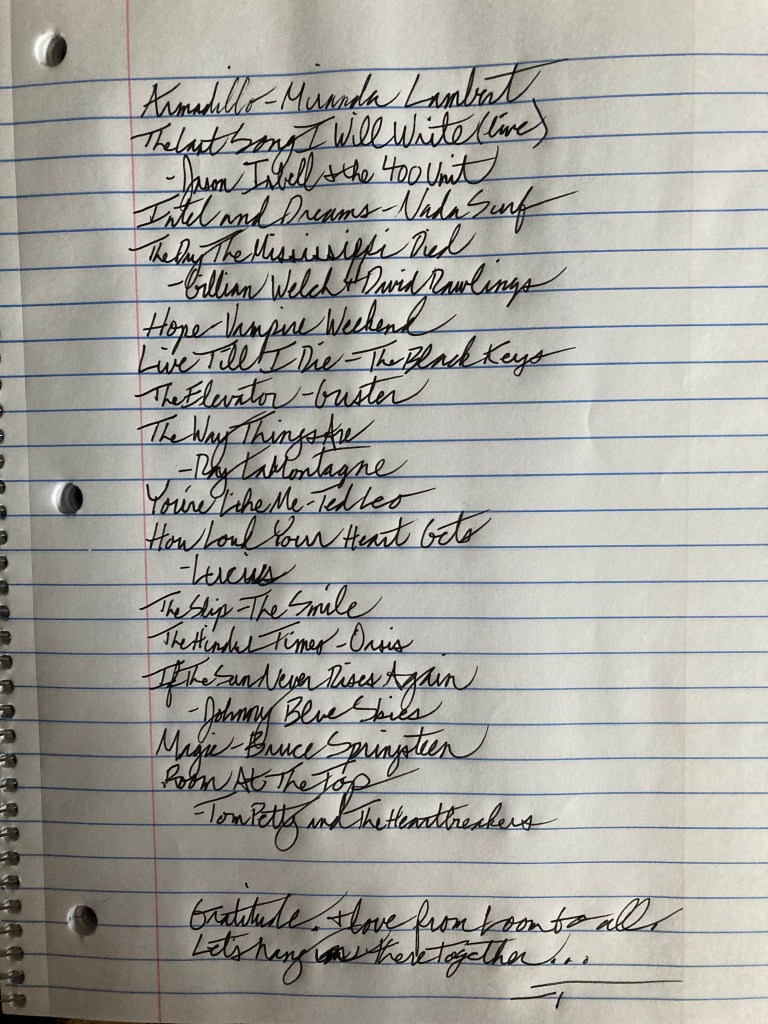 Armadillo - Miranda Lambert
The Last Song I Will Write (live)
- Jason Isbell & the 400 Unit
Intel and Dreams - Nada Surf
The Day The Mississippi Died
- Gillian Welch & David Rawlings
Hope - Vampire Weekend
Live Till I Die - The Black Keys
The Elevator - Guster
The Way Things Are
- Ray LaMontagne
You're Like Me - Ted Leo
How Loud Your Heart Gets
- Lucius
The Slip - The Smile
The Hindu Times - Oasis
If The Sun Never Rises Again
- Johnny Blue Skies
Magic - Bruce Springsteen
Room At The Top
- Tom Petty and The Heartbreakers
Gratitude & love from to all.
Let's hang in there together...